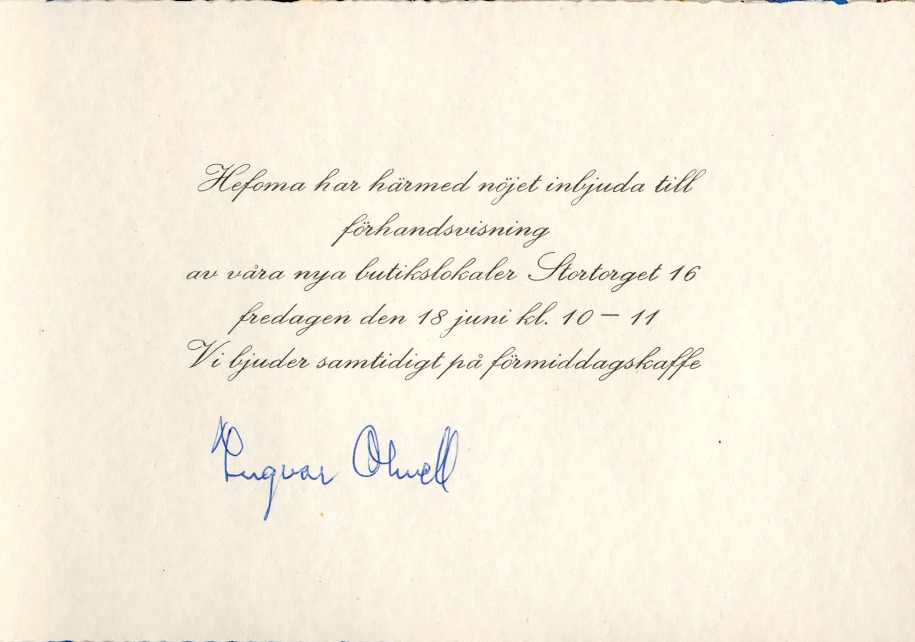 Hefoma har härmed nöjet inbjuda till
förhandsvisning
av våra nya butikslokaler Stortorget 16
fredagen den 18 juni kl. 10 – 11
Vi bjuder samtidigt på förmiddagskaffe
Ingvar